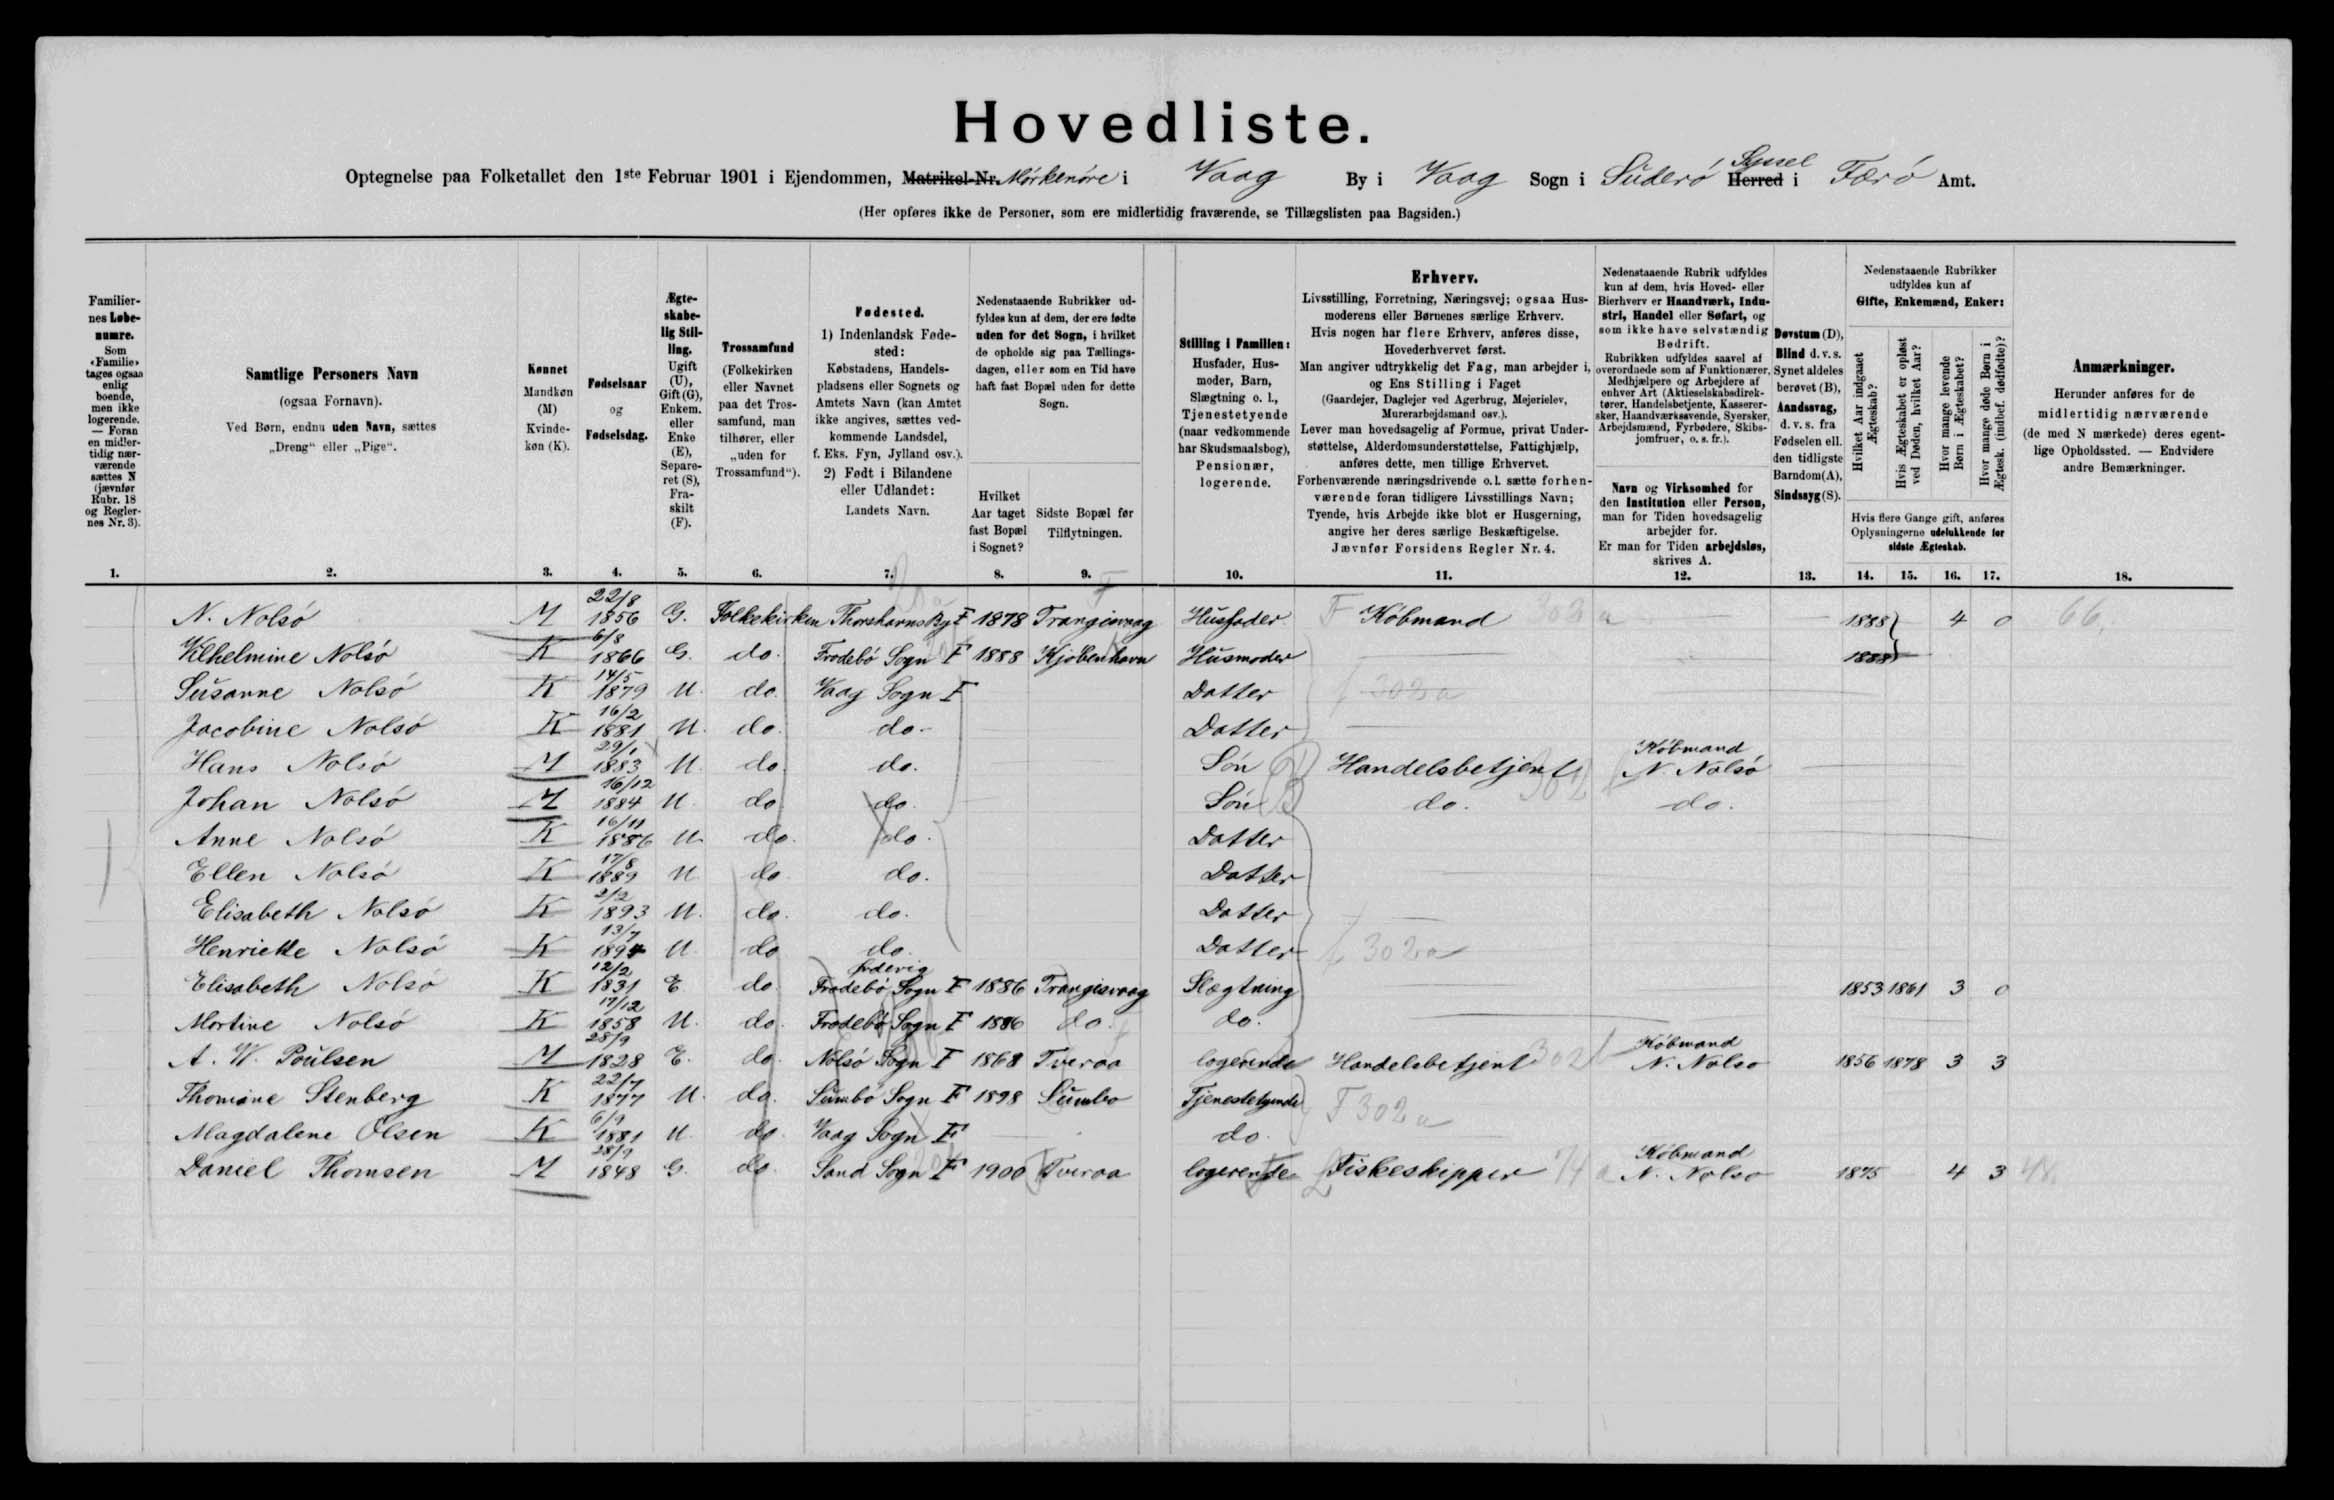 Hovedliste.
Optegnelse paa Folketallet den 1ste Februar 1901 i Ejendommen, Matrikel-Nr. Mörkenöre i Vaag By i Vaag Sogn i Süderö Syssel Herred i Færö Amt.
(Her opføres ikke de Personer, som ere midlertidig fraværende, se Tillægslisten paa Bagsiden.)
Familiernes Løbenumre. Som «Familie» tages ogsaa enlig boende, men ikke logerende. — Foran en midlertidig nærværende sættes N (jævnfør Rubr. 18 og Reglernes Nr. 3).
Samtlige Personers Navn (ogsaa Fornavn). Ved Børn, endnu uden Navn, sættes „Dreng“ eller „Pige“.
Kønnet Mandkøn (M) Kvindekøn (K).
Fødselsaar og Fødselsdag.
Ægteskabelig Stilling. Ugift (U), Gift (G), Enkem. eller Enke (E), Separeret (S), Fraskilt (F).
Trossamfund (Folkekirken eller Navnet paa det Trossamfund, man tilhører, eller „uden for Trossamfund“).
Fødested. 1) Indenlandsk Fødested: Købstadens, Handelspladsens eller Sognets og Amtets Navn (kan Amtet ikke angives, sættes vedkommende Landsdel, f. Eks. Fyn, Jylland osv.). 2) Født i Bilandene eller Udlandet: Landets Navn.
Nedenstaaende Rubrikker udfyldes kun af dem, der ere fødte uden for det Sogn, i hvilket de opholde sig paa Tællingsdagen, eller som en Tid have haft fast Bopæl uden for dette Sogn.
Hvilket Aar taget fast Bopæl i Sognet?
Sidste Bopæl før Tilflytningen.
Stilling i Familien: Husfader, Husmoder, Barn, Slægtning o. l., Tjenestetyende (naar vedkommende har Skudsmaalsbog), Pensionær, logerende.
Erhverv.
Livsstilling, Forretning, Næringsvej; ogsaa Husmoderens eller Børnenes særlige Erhverv.
Hvis nogen har flere Erhverv, anføres disse, Hovederhvervet først.
Man angiver udtrykkelig det Fag, man arbejder i, og Ens Stilling i Faget (Gaardejer, Daglejer ved Agerbrug, Mejerielev, Murerarbejdsmand osv.).
Lever man hovedsagelig af Formue, privat Understøttelse, Alderdomsunderstøttelse, Fattighjælp, anføres dette, men tillige Erhvervet.
Forhenværende næringsdrivende o. l. sætte forhenværende foran tidligere Livsstillings Navn; Tyende, hvis Arbejde ikke blot er Husgerning, angive her deres særlige Beskæftigelse.
Jævnfør Forsidens Regler Nr. 4.
Nedenstaaende Rubrik udfyldes kun af dem, hvis Hoved- eller Bierhverv er Haandværk, Industri, Handel eller Søfart, og som ikke have selvstændig Bedrift.
Rubrikken udfyldes saavel af overordnede som af Funktionærer, Medhjælpere og Arbejdere af enhver Art (Aktieselskabsdirektører, Handelsbetjente, Kasserersker, Haandværkssvende, Syersker, Arbejdsmænd, Fyrbødere, Skibsjomfruer, o. s. fr.).
Navn og Virksomhed for den Institution eller Person, man for Tiden hovedsagelig arbejder for. Er man for Tiden arbejdsløs, skrives A.
Døvstum (D), Blind d. v. s. Synet aldeles berøvet (B), Aandssvag, d. v. s. fra Fødselen ell. den tidligste Barndom (A), Sindssyg (S).
Nedenstaaende Rubrikker udfyldes kun af Gifte, Enkemænd, Enker:
Hvilket Aar indgaaet Ægteskab?
Hvis Ægteskabet er opløst ved Døden, hvilket Aar?
Hvor mange levende Børn i Ægteskabet?
Hvor mange døde Børn i Ægtesk. (indbef. dødfødte)?
Hvis flere Gange gift, anføres Oplysningerne udelukkende for sidste Ægteskab.
Anmærkninger. Herunder anføres for de midlertidig nærværende (de med N mærkede) deres egentlige Opholdssted. — Endvidere andre Bemærkninger.
1. 2. 3. 4. 5. 6. 7. 8. 9. 10. 11. 12. 13. 14. 15. 16. 17. 18.
N. Nolsö M 22/8 1856 G. Folkekirken Thorshavns By F 1878 Trangisvaag Husfader F Köbmand 302 a 1888 4 0 66.
Vilhelmine Nolsö K 6/8 1866 G. do. Frodebö Sogn F 1888 Kjöbenhavn Husmoder 1888
Susanne Nolsö K 14/5 1879 U. do. Vaag Sogn F Datter f 302a
Jacobine Nolsö K 16/2 1881 U. do. do. Datter
Hans Nolsö M 29/1 1883 U. do. do. Sön Handelsbetjent 302 Köbmand N. Nolsö
Johan Nolsö M 16/12 1884 U. do. do. Sön do. do.
Anne Nolsö K 16/11 1886 U. do. do. Datter
Ellen Nolsö K 17/8 1889 U do. do. Datter
Elisabeth Nolsö K 2/2 1893 U. do. do. Datter
Henriette Nolsö K 13/7 1894 U. do. do. Datter f 302a
Elisabeth Nolsö K 12/2 1831 E. do. Frodebö Sogn F 1886 Trangisvaag Slægtning 1853 1861 3 0
Mortine Nolsö K 17/12 1858 U. do. Frodebö Sogn F 1886 do. do.
A. W. Poulsen M 28/9 1828 E. do. Nolsö Sogn F 1868 Tveraa logerende Handelsbetjent 302 Köbmand N. Nolso 1856 1878 3 3
Thomine Stenberg K 22/7 1877 U. do. Sumbö Sogn F 1898 Sumbo Tjenestetyende F 302a
Magdalene Olsen K 6/9 1881 U. do. Vaag Sogn F do.
Daniel Thomsen M 28/9 1848 G. do. Sand Sogn F 1900 Tveraa logerende Fiskeskipper 74 a Köbmand N. Nolso 1875 4 3 48.